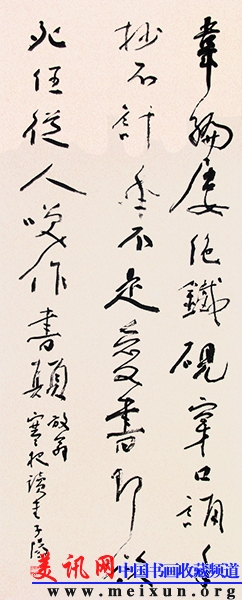 韋編屢絕鐵硯穿口誦手
抄不計年不是愛書即欲
死任從人笑作書顛
放翁
寒夜讀書
美讯网 中国书画收藏频道
www.meixun.org